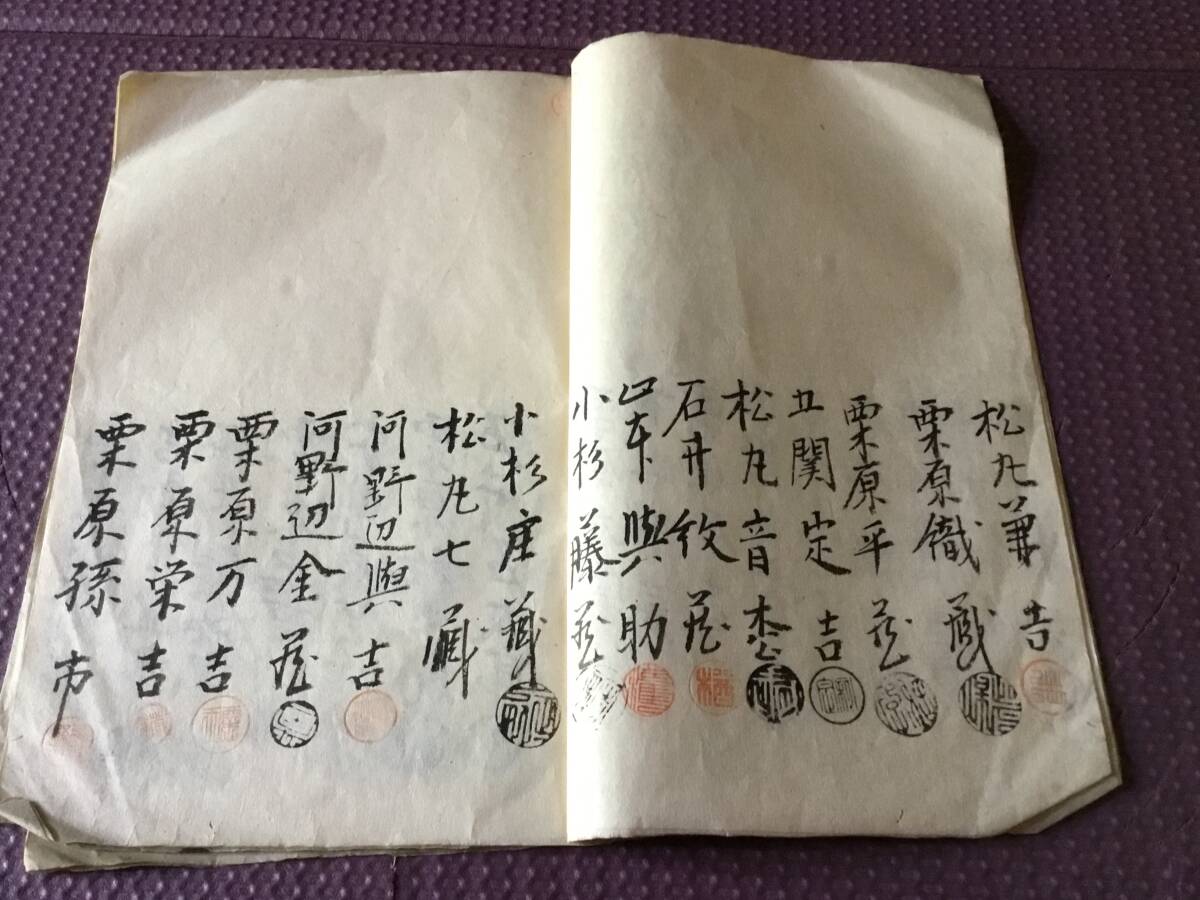 松丸兼吉
栗原儀蔵
栗原平蔵
五関定吉
松丸音
石井牧蔵
山本與助
小杉藤蔵
小杉庄蔵
松丸七蔵
河野辺與吉
河野辺金蔵
栗原万吉
栗原栄吉
栗原孫市